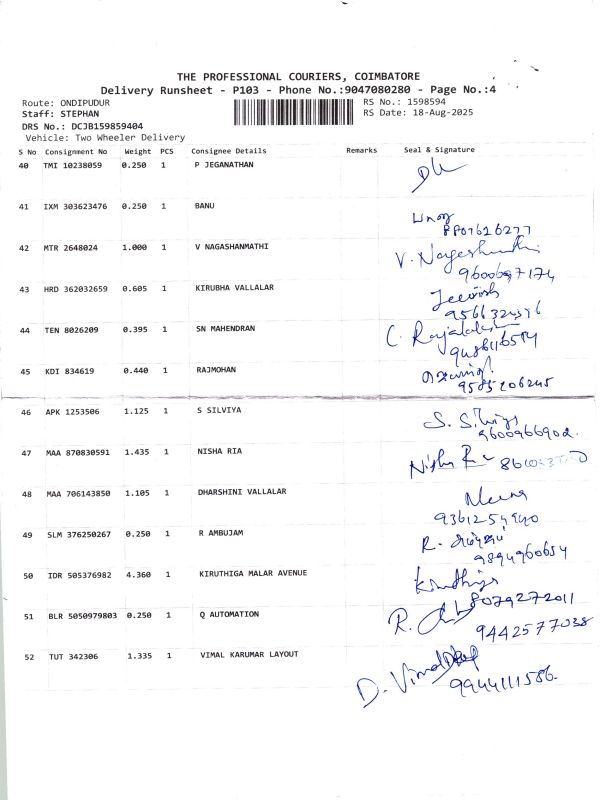 THE PROFESSIONAL COURIERS, COIMBATORE
Delivery Runsheet - P103 - Phone No.:9047080280 - Page No.:4
Route: ONDIPUDUR RS No.: 1598594
Staff: STEPHAN RS Date: 18-Aug-2025
DRS No.: DCJB159859404
Vehicle: Two Wheeler Delivery
S No Consignment No Weight PCS Consignee Details Remarks Seal & Signature
40 TMI 10238059 0.250 1 P JEGANATHAN
41 IXM 303623476 0.250 1 BANU
42 MTR 2648024 1.000 1 V NAGASHANMATHI
V.
43 HRD 362032659 0.605 1 KIRUBHA VALLALAR
44 TEN 8026209 0.395 1 SN MAHENDRAN
C.
45 KDI 834619 0.440 1 RAJMOHAN
46 APK 1253506 1.125 1 S SILVIYA
S.
9600966902
47 MAA 870830591 1.435 1 NISHA RIA
Nisha
48 MAA 706143850 1.105 1 DHARSHINI VALLALAR
Meena
49 SLM 376250267 0.250 1 R AMBUJAM
R.
9894960654
50 IDR 505376982 4.360 1 KIRUTHIGA MALAR AVENUE
8079272011
51 BLR 5050979803 0.250 1 Q AUTOMATION
R.
9442577038
52 TUT 342306 1.335 1 VIMAL KARUMAR LAYOUT
D. Vimal
9944111586